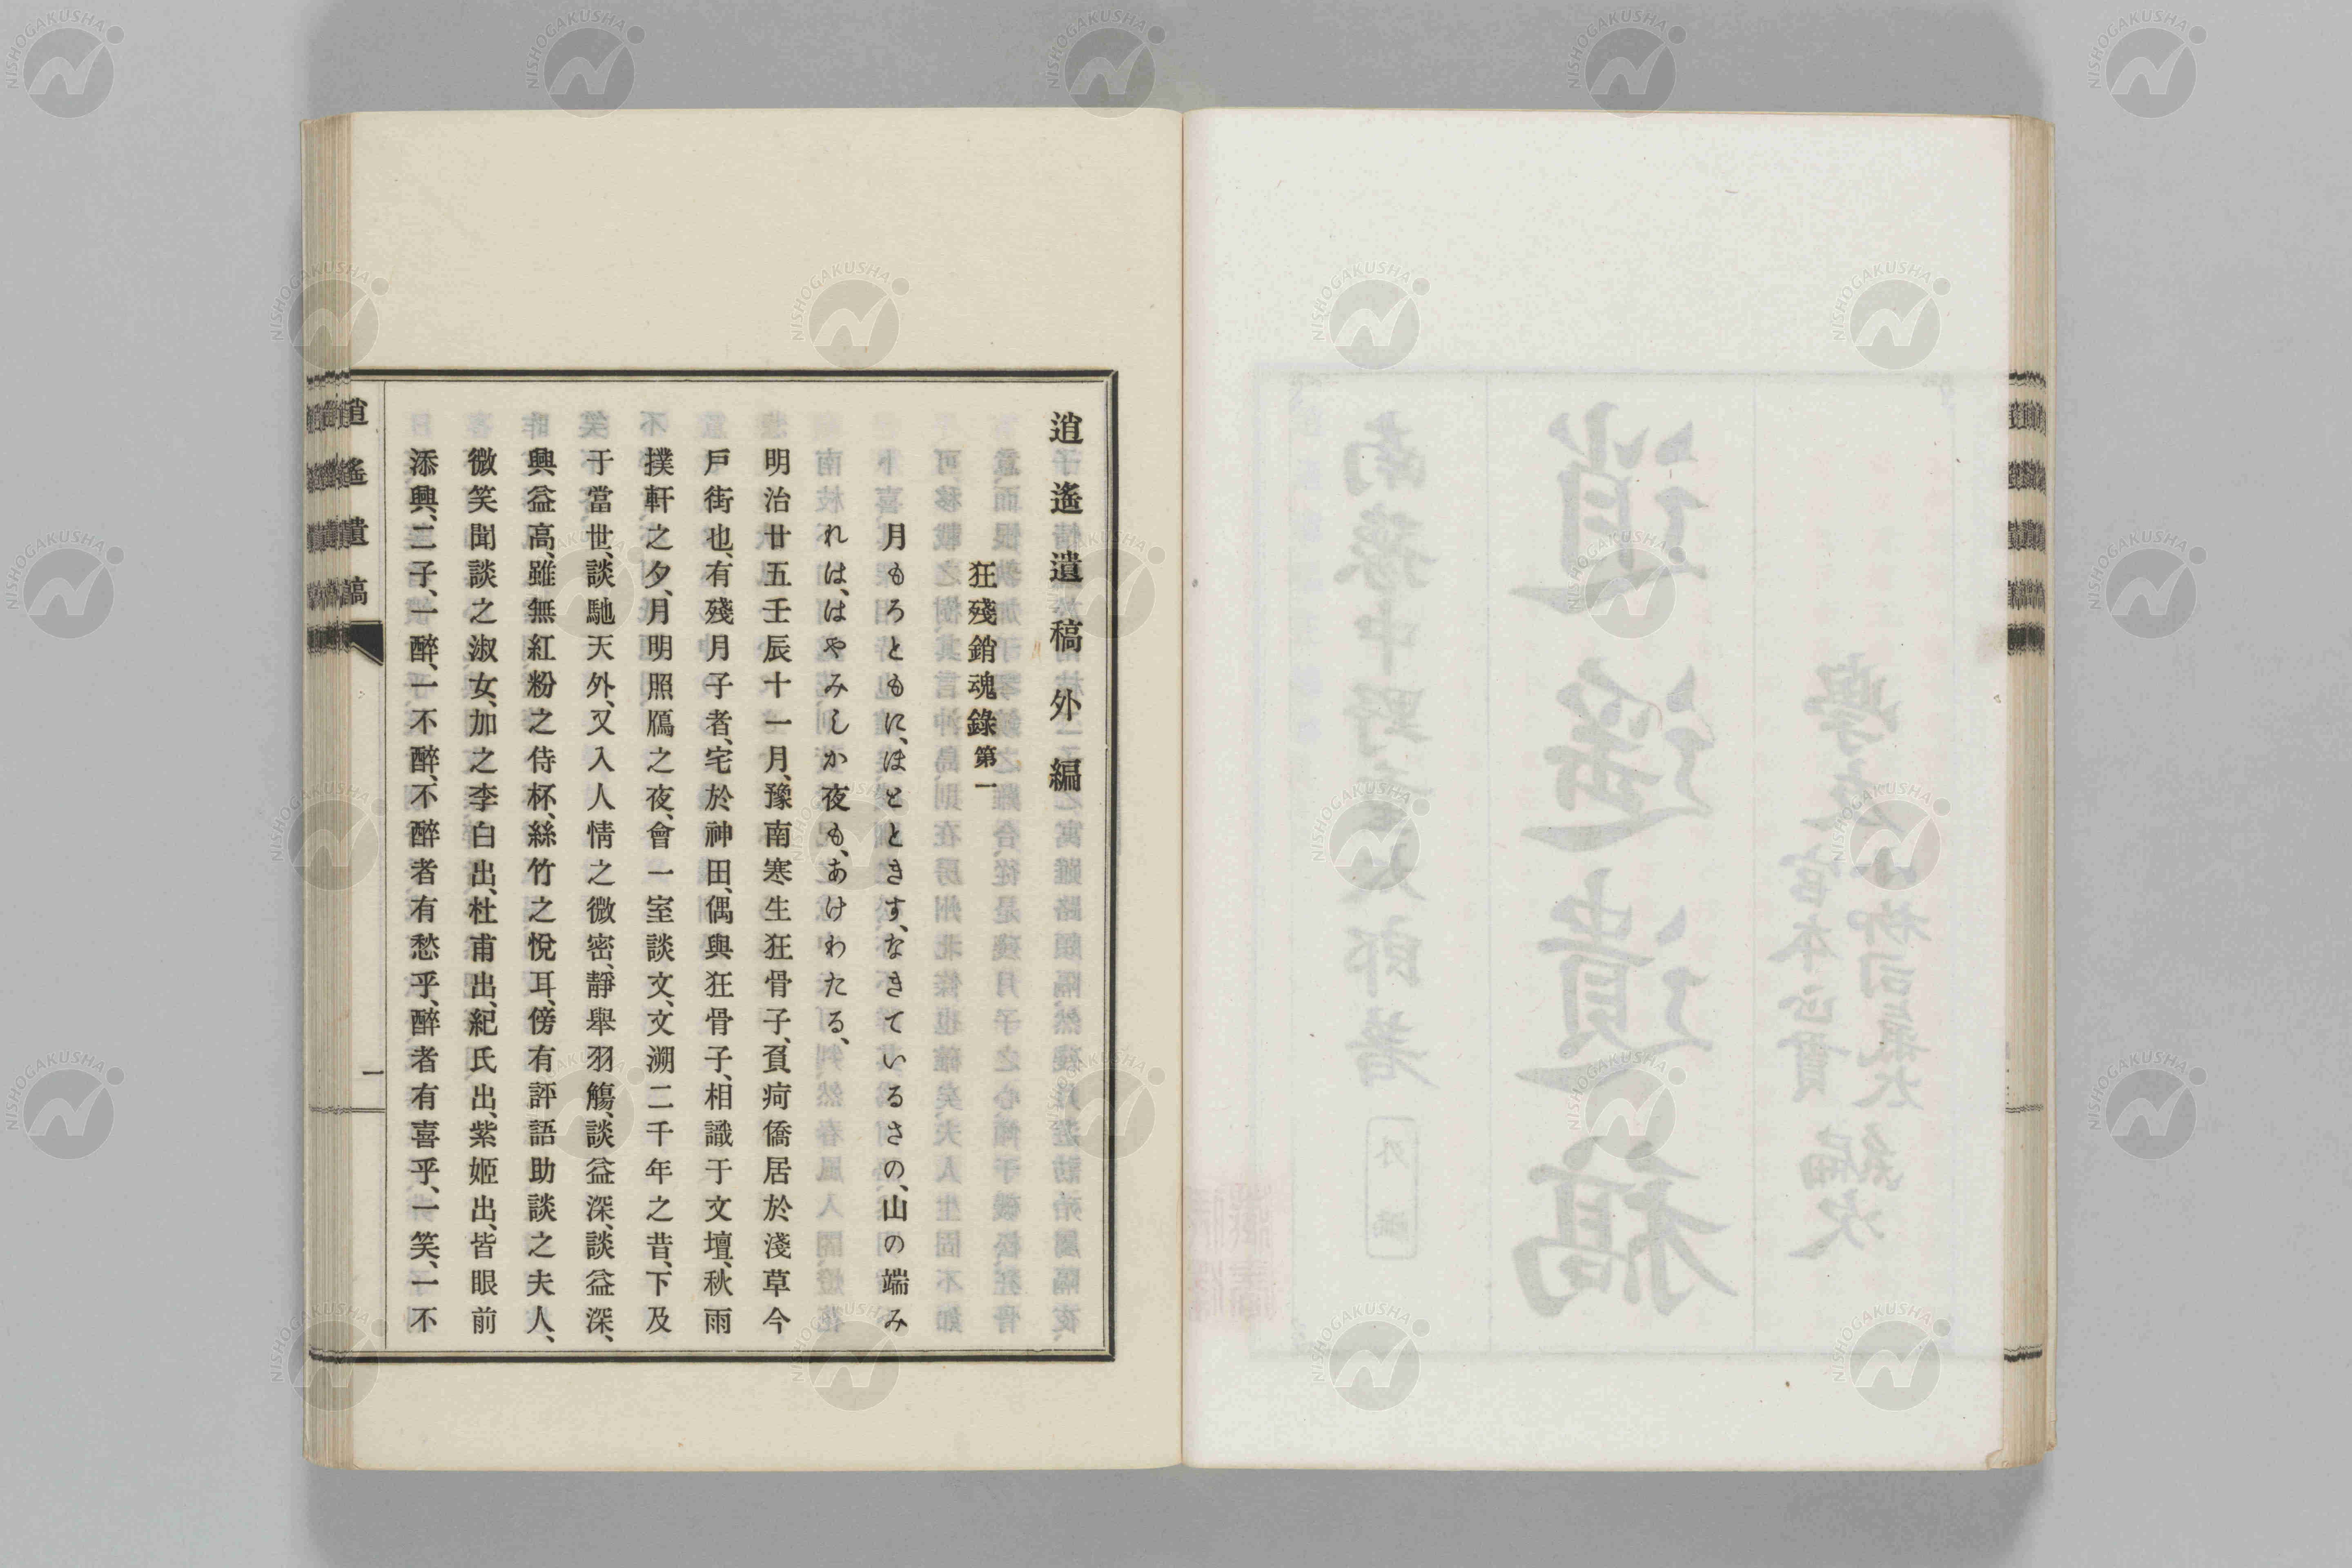 逍遙遺稿外編
狂殘銷魂錄第一
月もろともに、ほとときす、なきているさの、山の端み
れは、はやみしか夜も、あけわたる、
明治廿五壬辰十一月、豫南寒生狂骨子、負疴僑居於淺草今
戶街也、有殘月子者、宅於神田、偶與狂骨子、相識于文壇、秋雨
撲軒之夕、月明照鴈之夜、會一室談文、文溯二千年之昔、下及
于當世、談馳天外、又入人情之微密、靜舉羽觴、談益深、談益深、
興益高、雖無紅粉之侍杯、絲竹之悅耳、傍有評語助談之夫人、
微笑聞談之淑女、加之李白出、杜甫出、紀氏出、紫姬出、皆眼前
添興、二子、一醉、一不醉、不醉者有愁乎、醉者有喜乎、一笑、一不
逍遙遺稿
一
逍遙遺稿
南豫中野重太郎著
外編
NISHOGAKUSHA